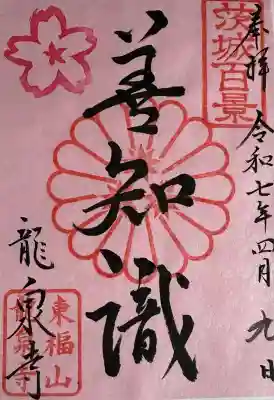 奉拝
茨城百景
令和七年四月九日
善知識
龍泉寺
東福山
龍泉寺